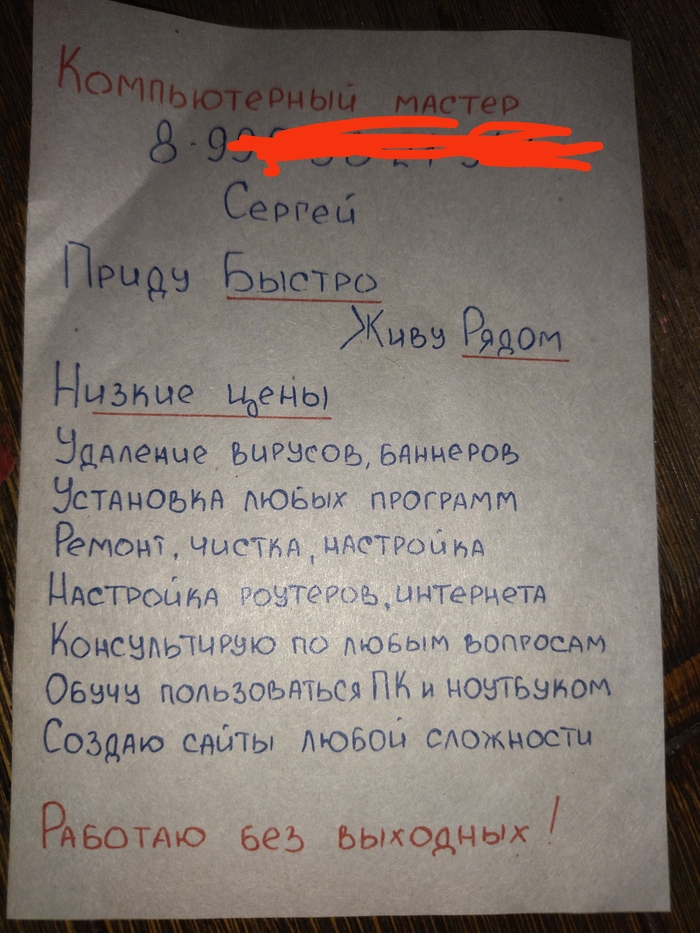 Компьютерный мастер
8-99
Сергей
Приду Быстро
Живу Рядом
Низкие цены
Удаление вирусов, баннеров
Установка любых программ
Ремонт, чистка, настройка
Настройка роутеров, интернета
Консультирую по любым вопросам
Обучу пользоваться ПК и ноутбуком
Создаю сайты любой сложности
Работаю без выходных!